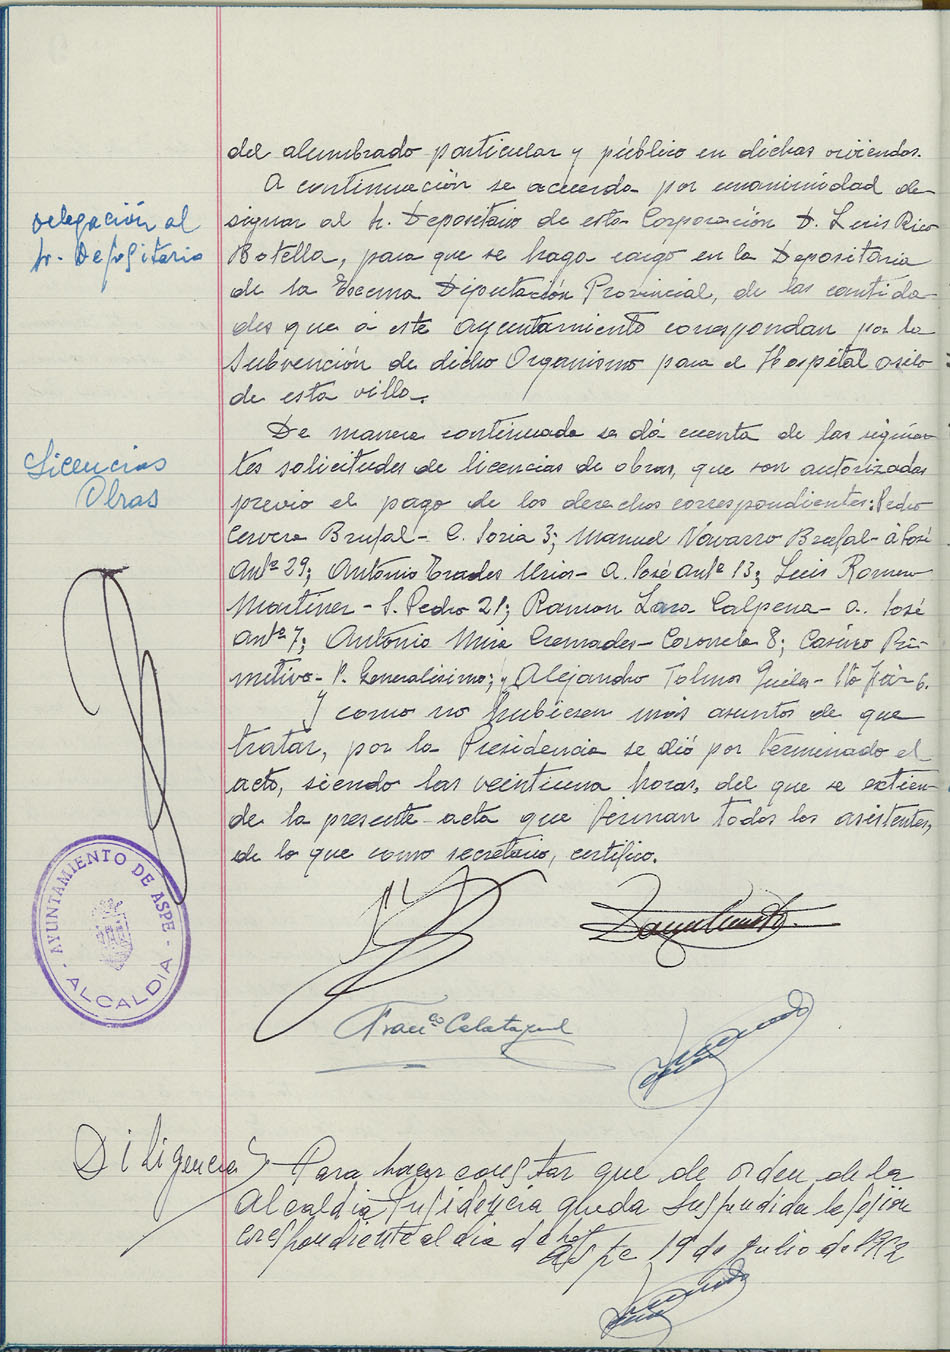 del alumbrado particular y público en dichas viviendas.
Delegación al
Sr. Depositario
A continuación se acuerda por unanimidad de-
signar al Sr. Depositario de esta Corporación D. Luis Rico
Botella, para que se haga cargo en la Depositaria
de la Excma Diputación Provincial, de las cantida-
des que a este Ayuntamiento correspondan por la
Subvención de dicho Organismo para el Hospital asilo
de esta villa.
Licencias
Obras
De manera continuada se dá cuenta de las siguien-
tes solicitudes de licencias de obras, que son autorizadas
previo el pago de los derechos correspondientes: Pedro
Cervera Brufal- C. Soria 3; Manuel Navarro Brufal- a José
Antº 29; Antonio Prades Urios- A. José Antº 13; Luis Romero
Martinez- S. Pedro 21; Ramon Lara Calpena- a. José
Antº 7; Antonio Mira Cremades- Coronela 8; Casino Pri-
mitivo- P. Generalisimo; y Alejandro Tolmos 6.
Y como no hubiesen más asuntos de que
tratar, por la Presidencia se dió por terminado el
acto, siendo las veintiuna horas, del que se extien-
de la presente acta que firman todos los asistentes,
de lo que como secretario, certifico.
AYUNTAMIENTO DE ASPE
- ALCALDIA -
Francº Calatayud
Diligencia
Para hacer constar que de orden de la
Alcaldia Presidencia queda suspendida la sesión
correspondiente al dia de hoy
Aspe 19 de Julio de 1952